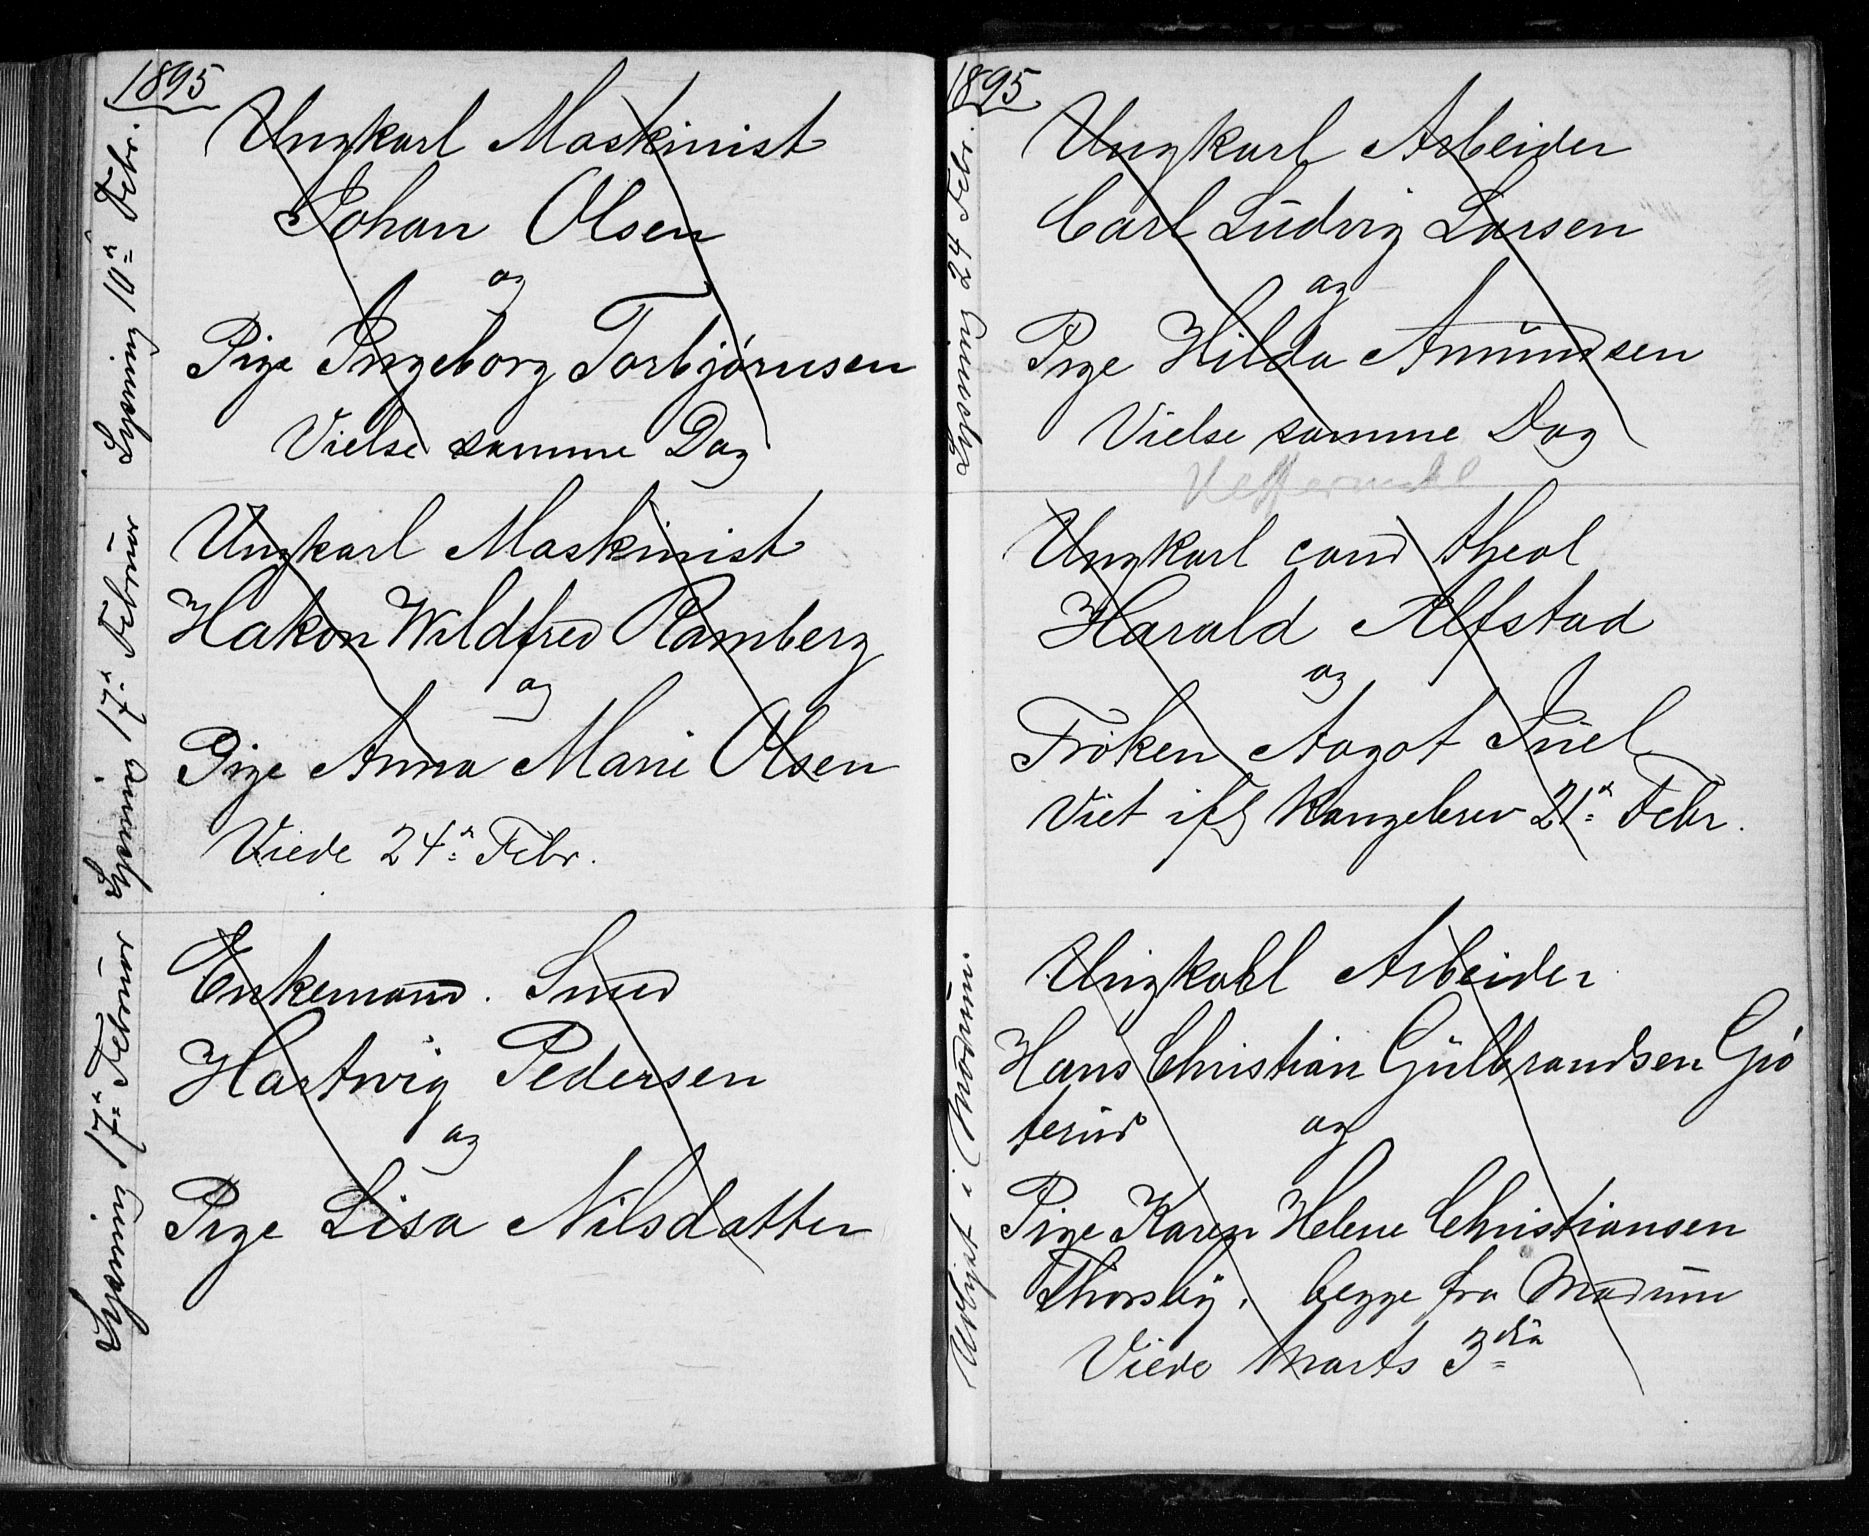 1895
Lysning 10de Febr.
Ungkarl Maskinist
Johan Olsen
og
Pige Ingeborg Torbjørnsen
Vielse samme Dag
Lysning 17de Februar
Ungkarl Maskinist
Hakon Wildfred Ramberg
og
Pige Anna Marie Olsen
Viede 24de Febr.
Lysning 17de Februar
Enkemand. Smed
Hartwig Pedersen
og
Pige Lisa Nilsdatter
1895
Lysning 24 Febr.
Ungkarl Arbeider
Carl Ludvig Larsen
og
Pige Hilda Amundsen
Vielse samme Dag
Ungkarl cand theol
Harald Alfstad
og
Frøken Aagot Juel
Viet ifg Kongebrev 21de Febr.
Udlyst i Modum.
Ungkarl Arbeider
Hans Christian Gulbrandsen Gjø
terud og
Pige Karen Helene Christiansen
Thorsby. begge fra Modum
Viede Marts 3die